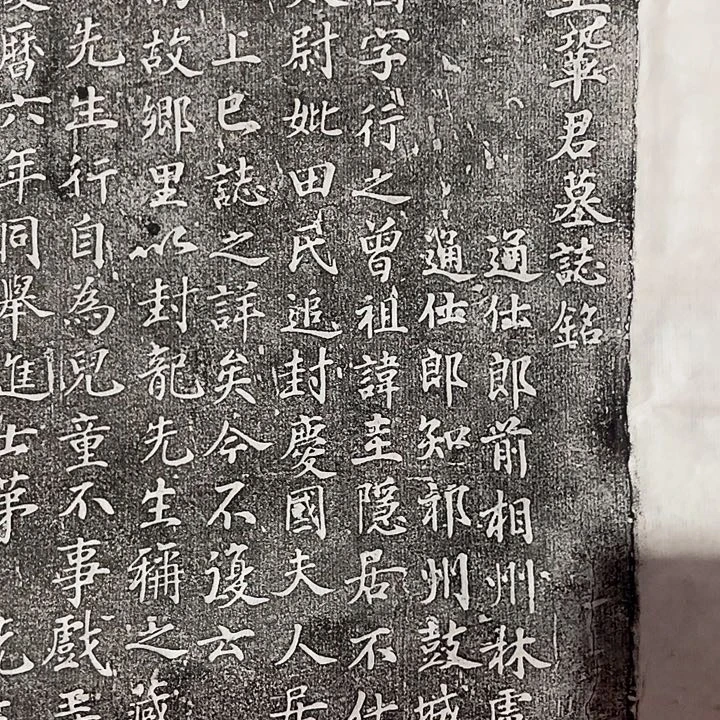 鞏君墓誌銘
通仕郎前相州林慮
通仕郎知祁州鼓城
字行之曾祖諱圭隱居不仕
尉妣田氏追封慶國夫人居
上已誌之詳矣今不復云
故鄉里以封龍先生稱之藏
先生行自為兒童不事戲
曆六年同舉進士第